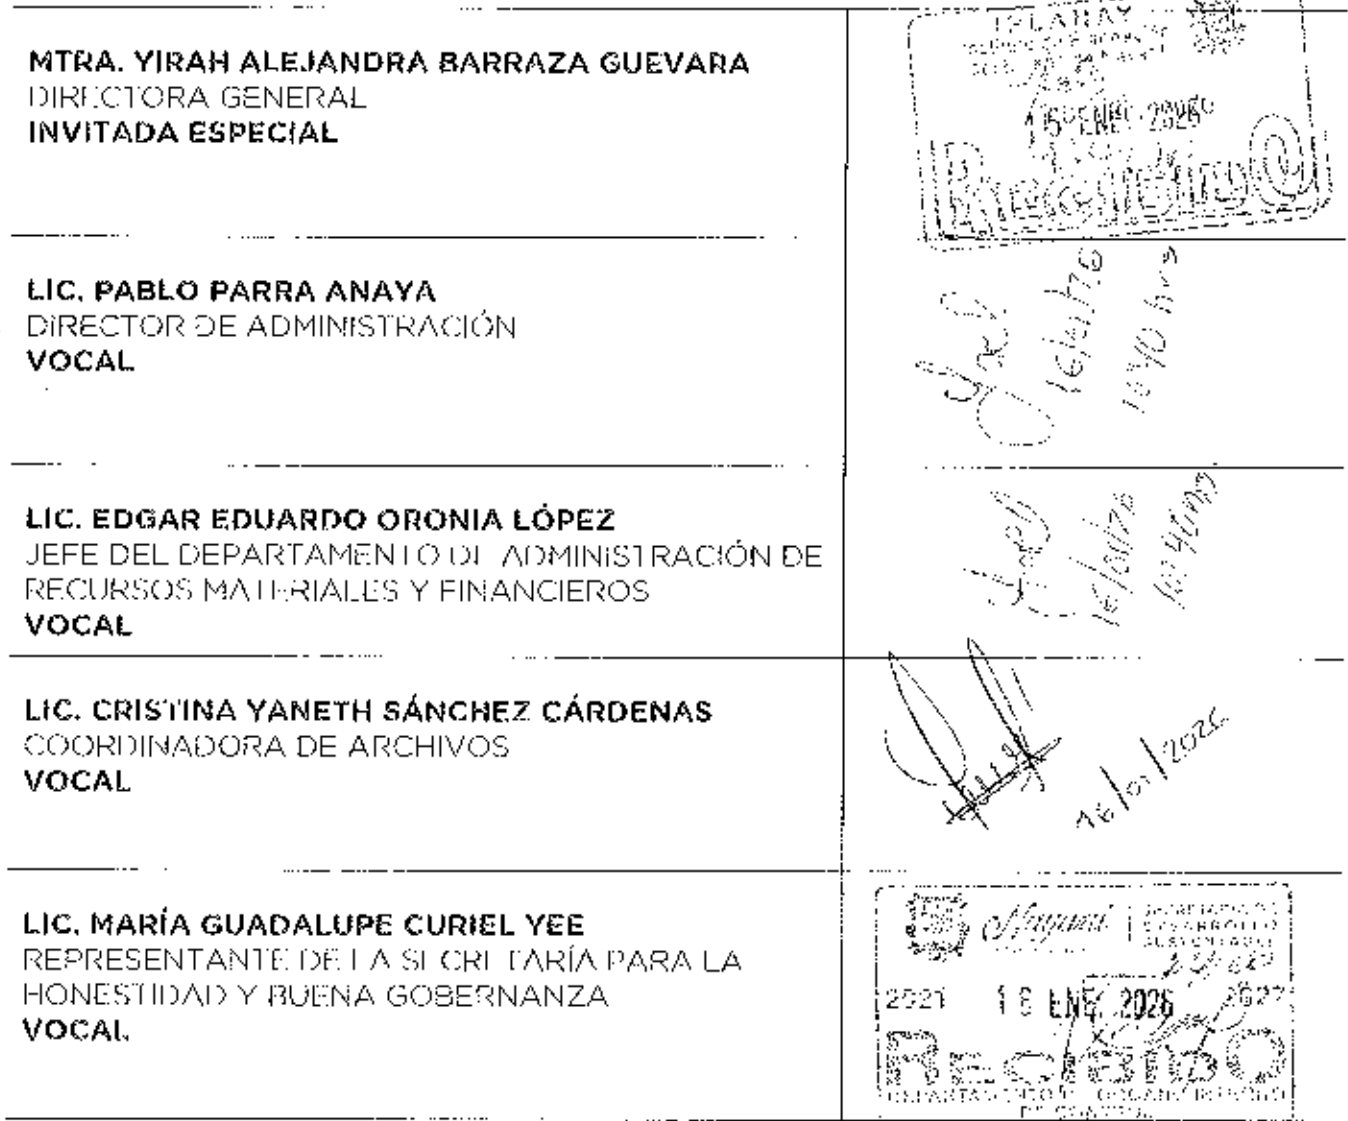 MTRA. YIRAH ALEJANDRA BARRAZA GUEVARA
DIRECTORA GENERAL
INVITADA ESPECIAL
ENE 2026
Recibido
LIC. PABLO PARRA ANAYA
DIRECTOR DE ADMINISTRACIÓN
VOCAL
16/01/26
LIC. EDGAR EDUARDO ORONIA LÓPEZ
JEFE DEL DEPARTAMENTO DE ADMINISTRACIÓN DE
RECURSOS MATERIALES Y FINANCIEROS
VOCAL
LIC. CRISTINA YANETH SÁNCHEZ CÁRDENAS
COORDINADORA DE ARCHIVOS
VOCAL
16/01/2026
LIC. MARÍA GUADALUPE CURIEL YEE
REPRESENTANTE DE LA SECRETARÍA PARA LA
HONESTIDAD Y BUENA GOBERNANZA
VOCAL
Nayarit
SECRETARÍA DE
DESARROLLO
SUSTENTABLE
2021 16 ENE 2026 2027
RECIBIDO
DEPARTAMENTO ORGANO INTERNO
DE CONTROL